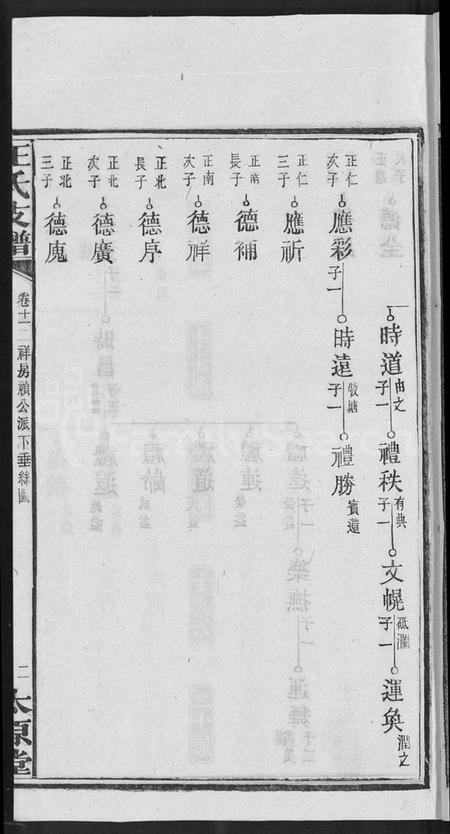 時道 由之 子一 禮秩 有典 子一 文幌 砥瀾 子一 運奐 潤之
正仁次子 應彩 子一 時遠 牧塘 子一 禮勝 賓還
正仁三子 應祈
正南長子 德補
正南次子 德祥
正北長子 德序
正北次子 德廣
正北三子 德
王氏支譜 卷十一 二祥房禎公派下垂絲圖 二 太原堂